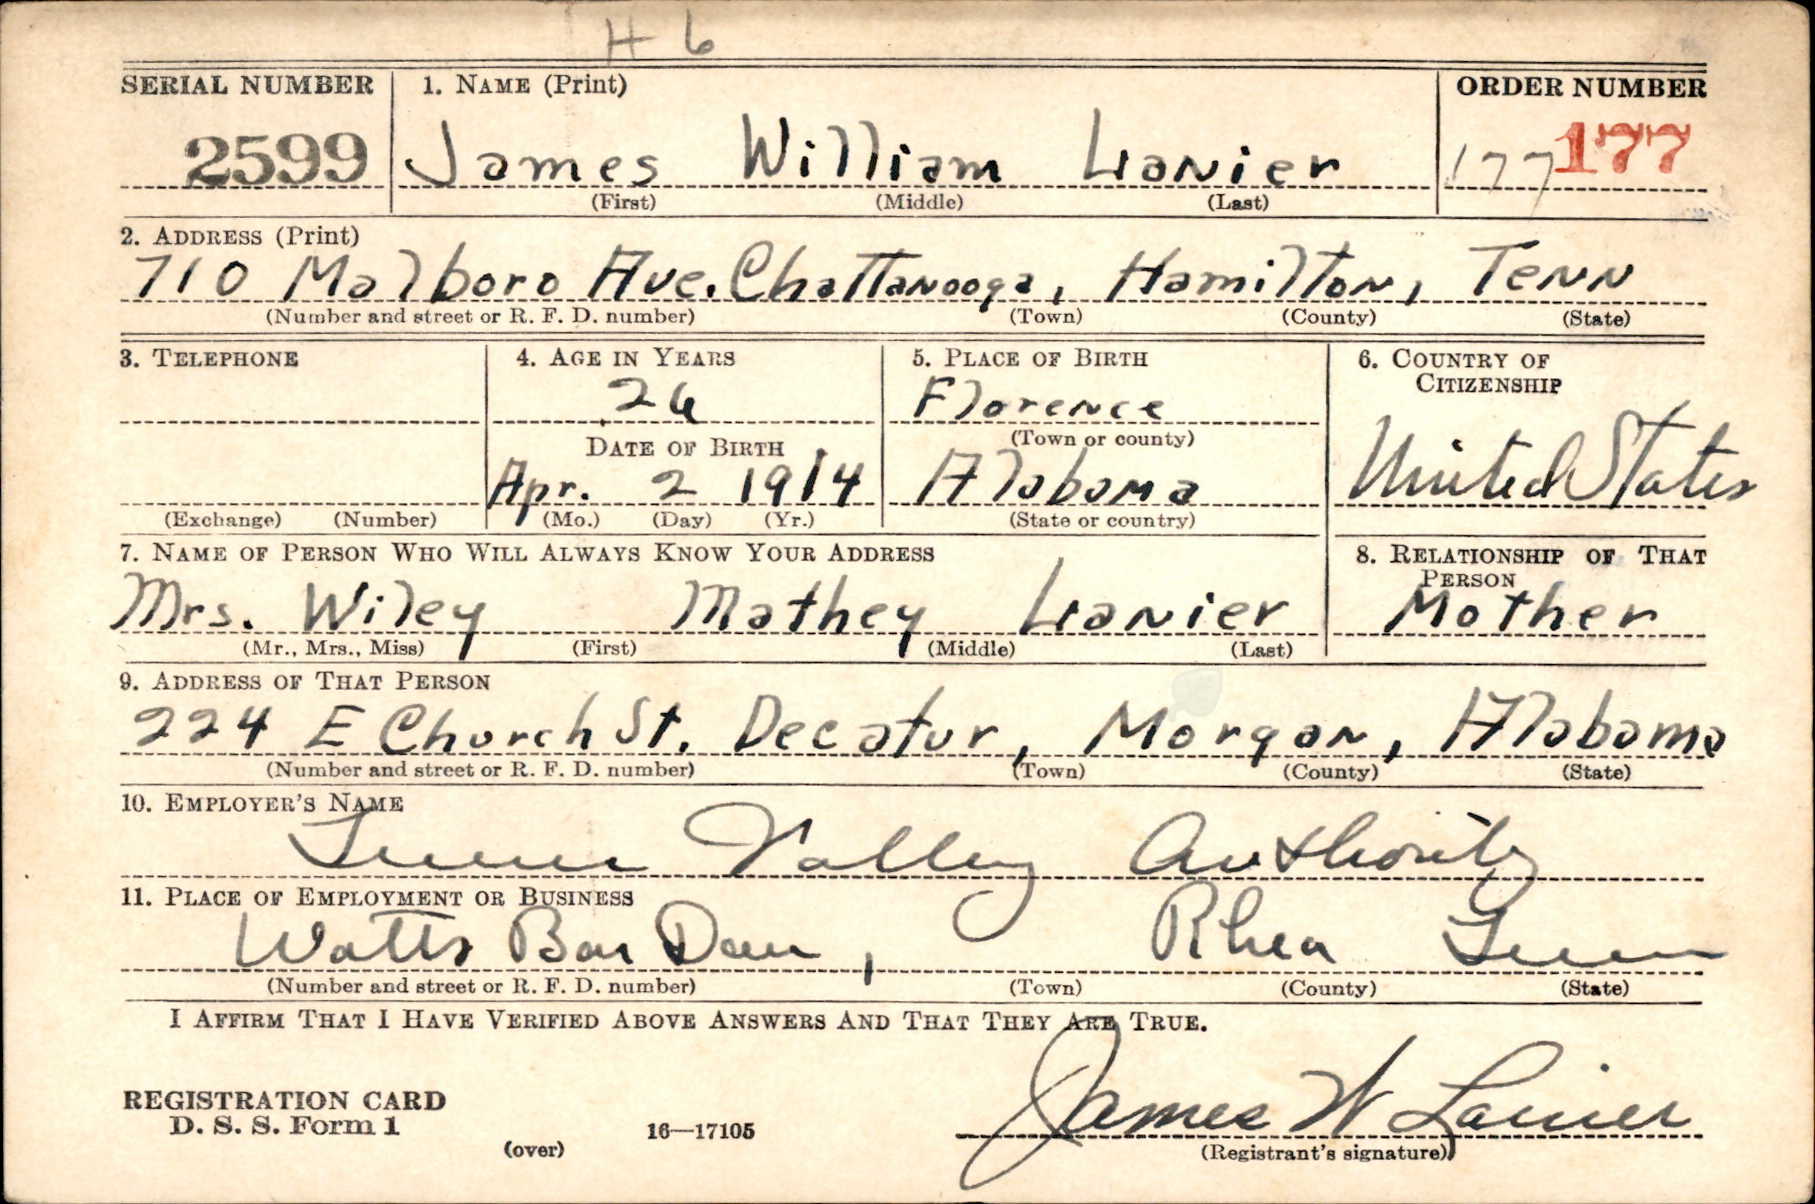 H 6
SERIAL NUMBER 1. NAME (Print) ORDER NUMBER
2599 James William Lanier 177 177
(First) (Middle) (Last)
2. ADDRESS (Print)
710 Malboro Ave. Chattanooga, Hamilton, Tenn
(Number and street or R. F. D. number) (Town) (County) (State)
3. TELEPHONE 4. AGE IN YEARS 5. PLACE OF BIRTH 6. COUNTRY OF
CITIZENSHIP
26 Florence
DATE OF BIRTH (Town or county)
Apr. 2 1914 Alabama United States
(Exchange) (Number) (Mo.) (Day) (Yr.) (State or country)
7. NAME OF PERSON WHO WILL ALWAYS KNOW YOUR ADDRESS 8. RELATIONSHIP OF THAT
PERSON
Mrs. Wiley Mathey Lanier Mother
(Mr., Mrs., Miss) (First) (Middle) (Last)
9. ADDRESS OF THAT PERSON
224 E Church St. Decatur, Morgan, Alabama
(Number and street or R. F. D. number) (Town) (County) (State)
10. EMPLOYER'S NAME
Tenn Valley Authority
11. PLACE OF EMPLOYMENT OR BUSINESS
Watts Bar Dam, Rhea Tenn
(Number and street or R. F. D. number) (Town) (County) (State)
I AFFIRM THAT I HAVE VERIFIED ABOVE ANSWERS AND THAT THEY ARE TRUE.
REGISTRATION CARD
D. S. S. Form 1
(over) 16—17105
James W Lanier
(Registrant's signature)